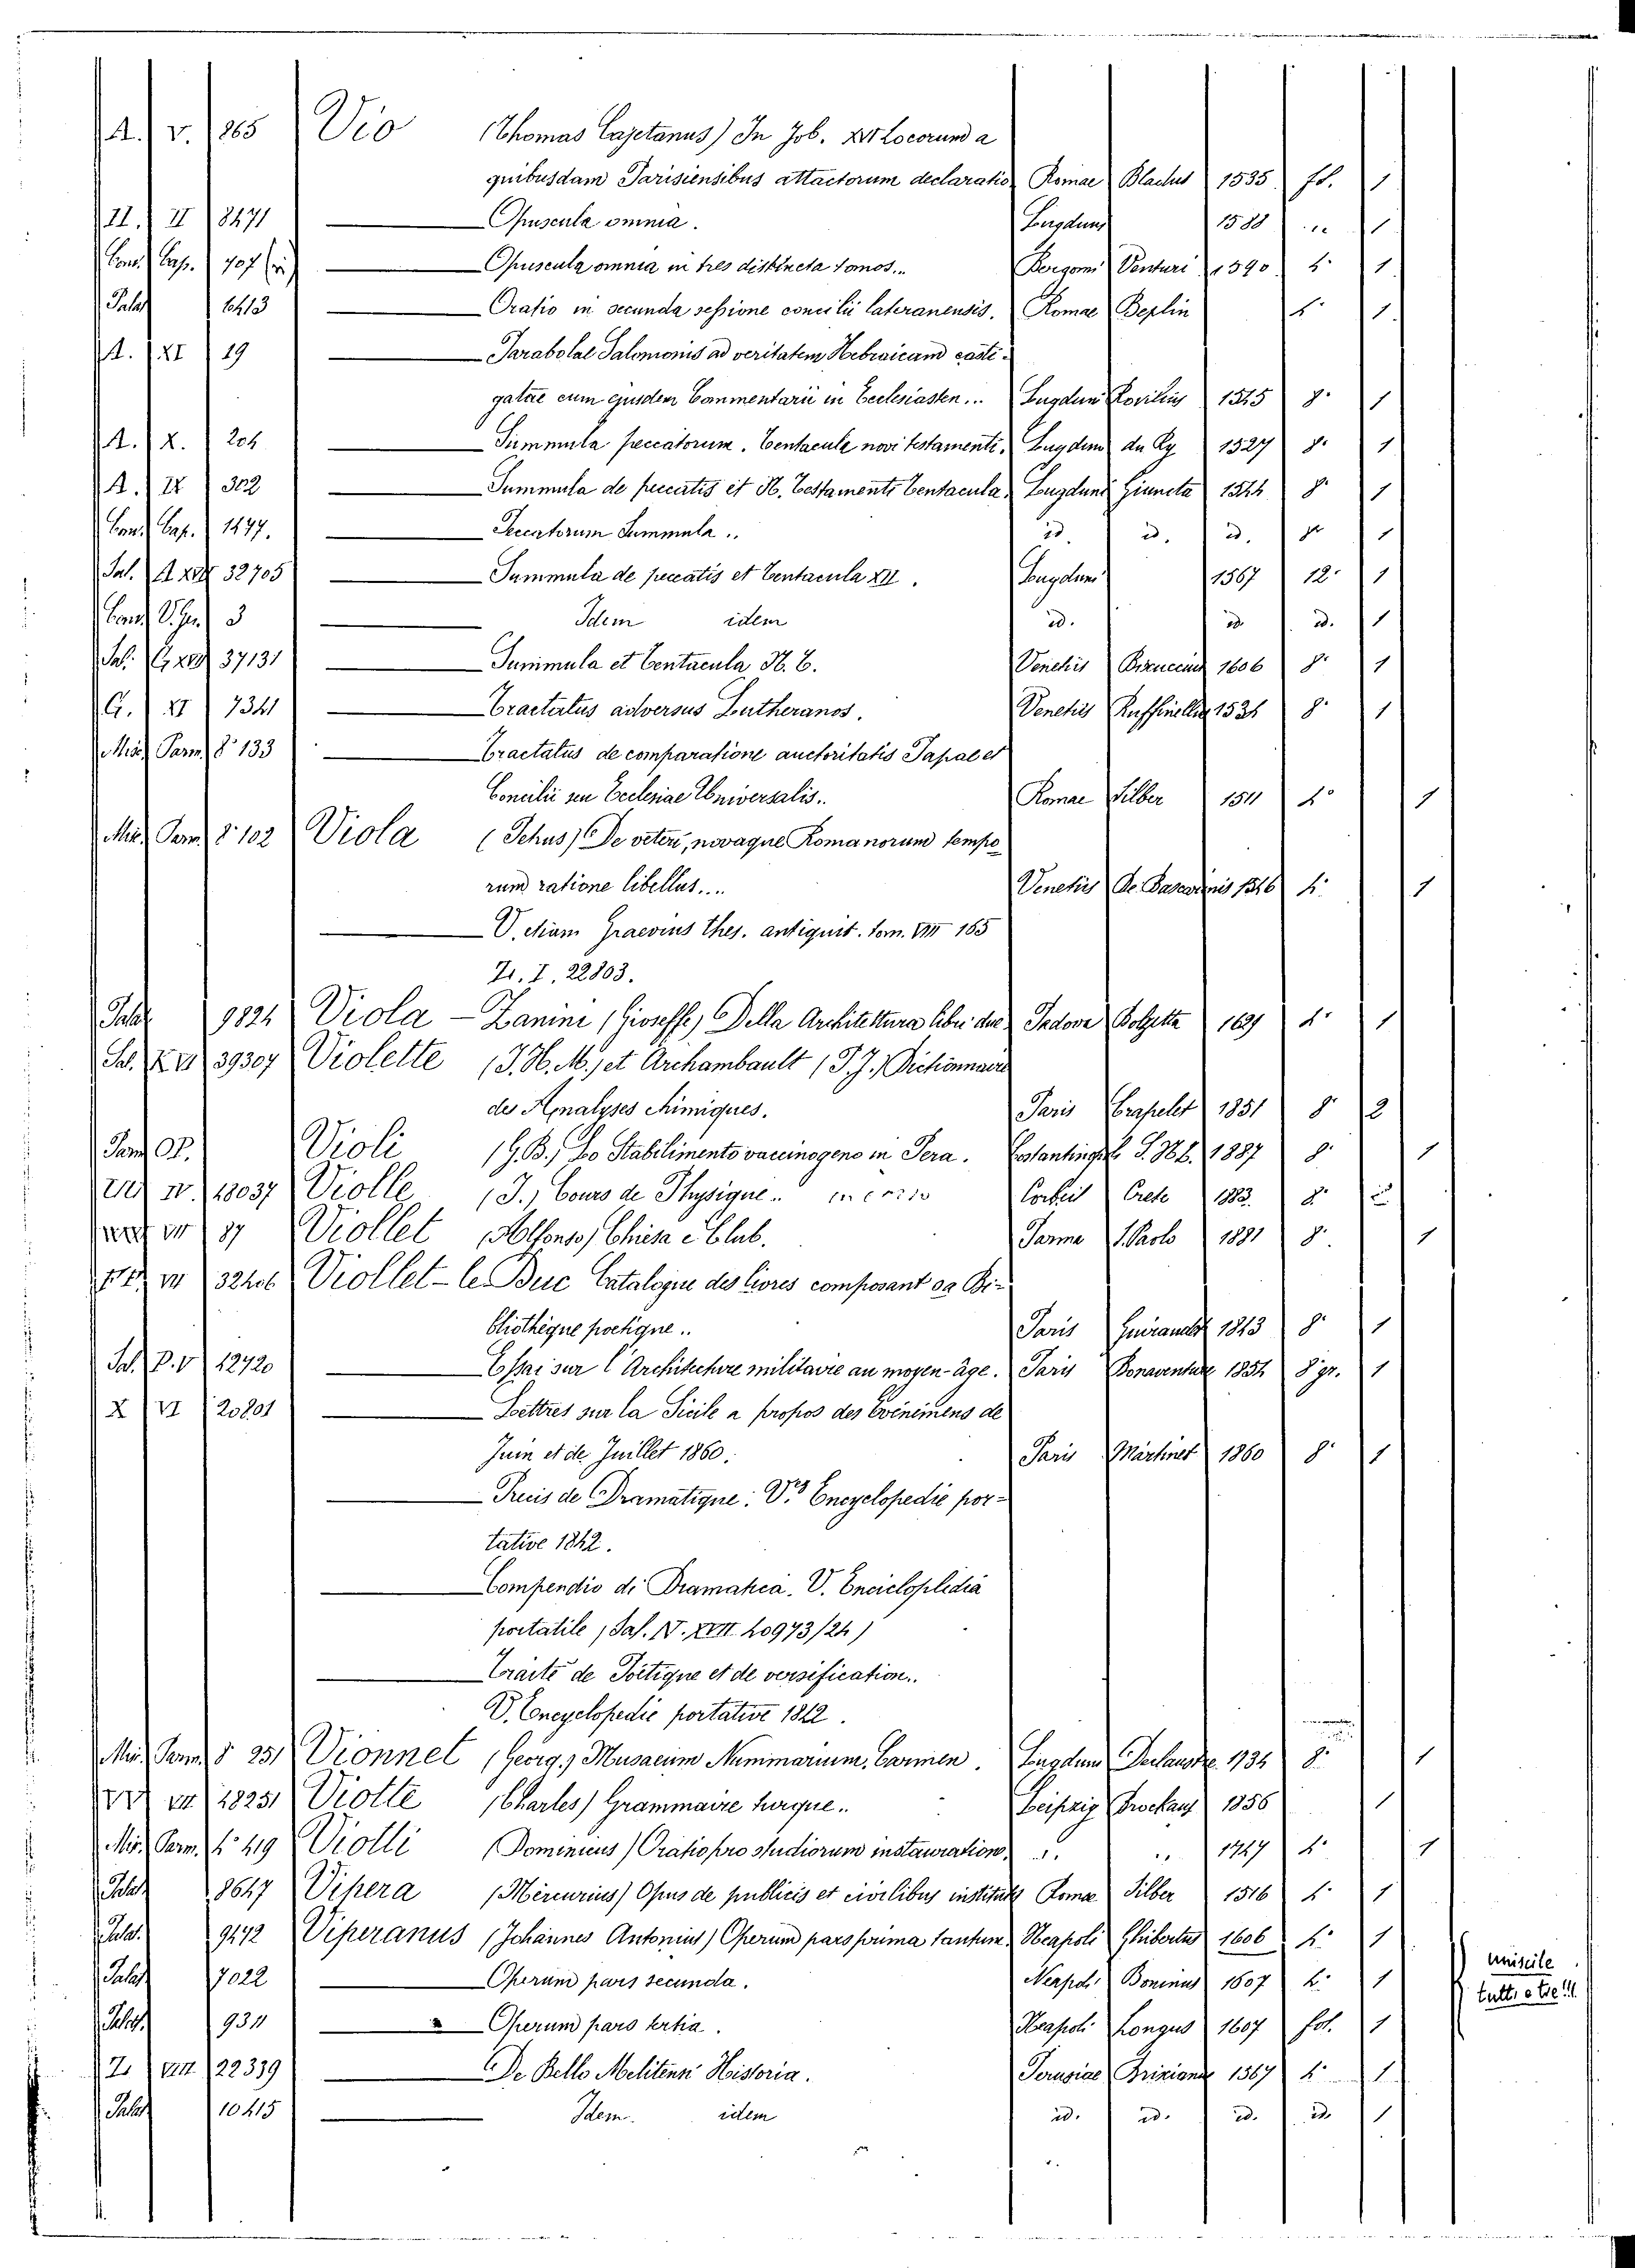 A. V. 1865 Vio (Thomas Cajetanus) In Job. XVI Locorum a
quibusdam Parisiensibus attactorum declaratio Romae Bladus 1535 fol. 1
II. II 8471 Opuscula omnia. Lugduni 1588 " 1
Conv. Cap. 707 Opuscula omnia in tres distincta tomos... Bergomi Venturi 1590 4° 1
Palat 6413 Oratio in secunda sessione concilii lateranensis. Romae Beplin 4° 1
A. XI 19 Parabolae Salomonis ad veritatem Hebraicam casti-
gatae cum ejusdem Commentarii in Ecclesiasten... Lugduni Rovilius 1545 8° 1
A. X. 204 Summula peccatorum. Centacule novi testamenti. Lugduni du Ry 1527 8° 1
A. IX 302 Summula de peccatis et N. Testamenti Centacula, Lugduni Giuncta 1544 8° 1
Conv. Cap. 1477. Peccatorum Summula.. id. id. id. 8° 1
Sal. A XVI 32705 Summula de peccatis et Centacula XII. Lugduni 1567 12° 1
Conv. 3 Idem idem id. id. id. 1
Sal. 37131 Summula et Centacula N. T. Venetiis 1606 8° 1
G. XI 7341 Tractatus adversus Lutheranos. Venetiis Ruffinelli 8° 1
Misc. Parm. 8° 133 Tractatus de comparatione auctoritatis Papae et
Concilii seu Ecclesiae Universalis.. Romae Silber 1511 4° 1
Misc. Parm. 8° 102 Viola (Jehus) De veteri, novaque Romanorum tempo
rum ratione libellus.... Venetiis De 1546 4° 1
V. etiam Graevius thes. antiquit. tom. VIII 165
Z. I. 22803.
Palat 9824 Viola - Zanini (Gioseffe) Della Architettura libri due Padova Bolzetta 4° 1
Sal. 39307 Violette (J. H. M.) et Archambault (P. J.) Dictionnaire
des Analyses chimiques. Paris Crapelet 1851 8° 2
Parm. Op. Violi (G. B.) Lo Stabilimento vaccinogeno in Pera. 1887 8° 1
IV. 18037 Violle (J.) Cours de Physique.. Corbeil Crete 1883. 8°
VII 87 Viollet (Alfonso) Chiesa e Club. Parma S. Paolo 1891 8° 1
VI 32406 Viollet-le Duc Catalogue des livres composant sa Bi-
bliothèque poetique.. Paris 1843 8° 1
Sal. P. V 12720 Essai sur l'Architecture militaire au moyen-âge. Paris Bonaventure 1854 8° gr. 1
X VI 20801 Lettres sur la Sicile a propos des évènimens de
Juin et de Juillet 1860. Paris Martinet 1860 8° 1
Precis de Dramatique. V.' Encyclopedie por-
tative 1842.
Compendio di Dramatica. V. Enciclopledia
portatile (Sal. N. XVII. 40973/24)
Traité de Poëtique et de versification..
V. Encyclopedie portative 1842.
Misc. Parm. 8° 251 Vionnet (Georg.) Musaeum Nummarium, Carmen. Lugduni 1734 8° 1
VII 18251 Viotte (Charles) Grammaire turque.. Leipzig Brockaus 1856 1
Mis. Parm. 4° 419 Viotti (Dominicus) Oratio pro studiorum instauratione .. 1747 4° 1
Palat 8647 Vipera (Mercurius) Opus de publicis et civilibus institutis Romae Silber 1516 4° 1
Palat. 9472 Viperanus (Johannes Antonius) Operum pars prima tantum, Neapoli 1606 4° 1
Palat 7022 Operum pars secunda. Neapoli Boninus 1607 4° 1
miscele
tutti e tre!!!
Palat. 9311 Operum pars tertia. Neapoli Longus 1607 fol. 1
Z. VIII 22339 De Bello Melitensi Historia. Perusiae Brixiane 1567 4° 1
Palat 10415 Idem. idem id. id. id. id. 1